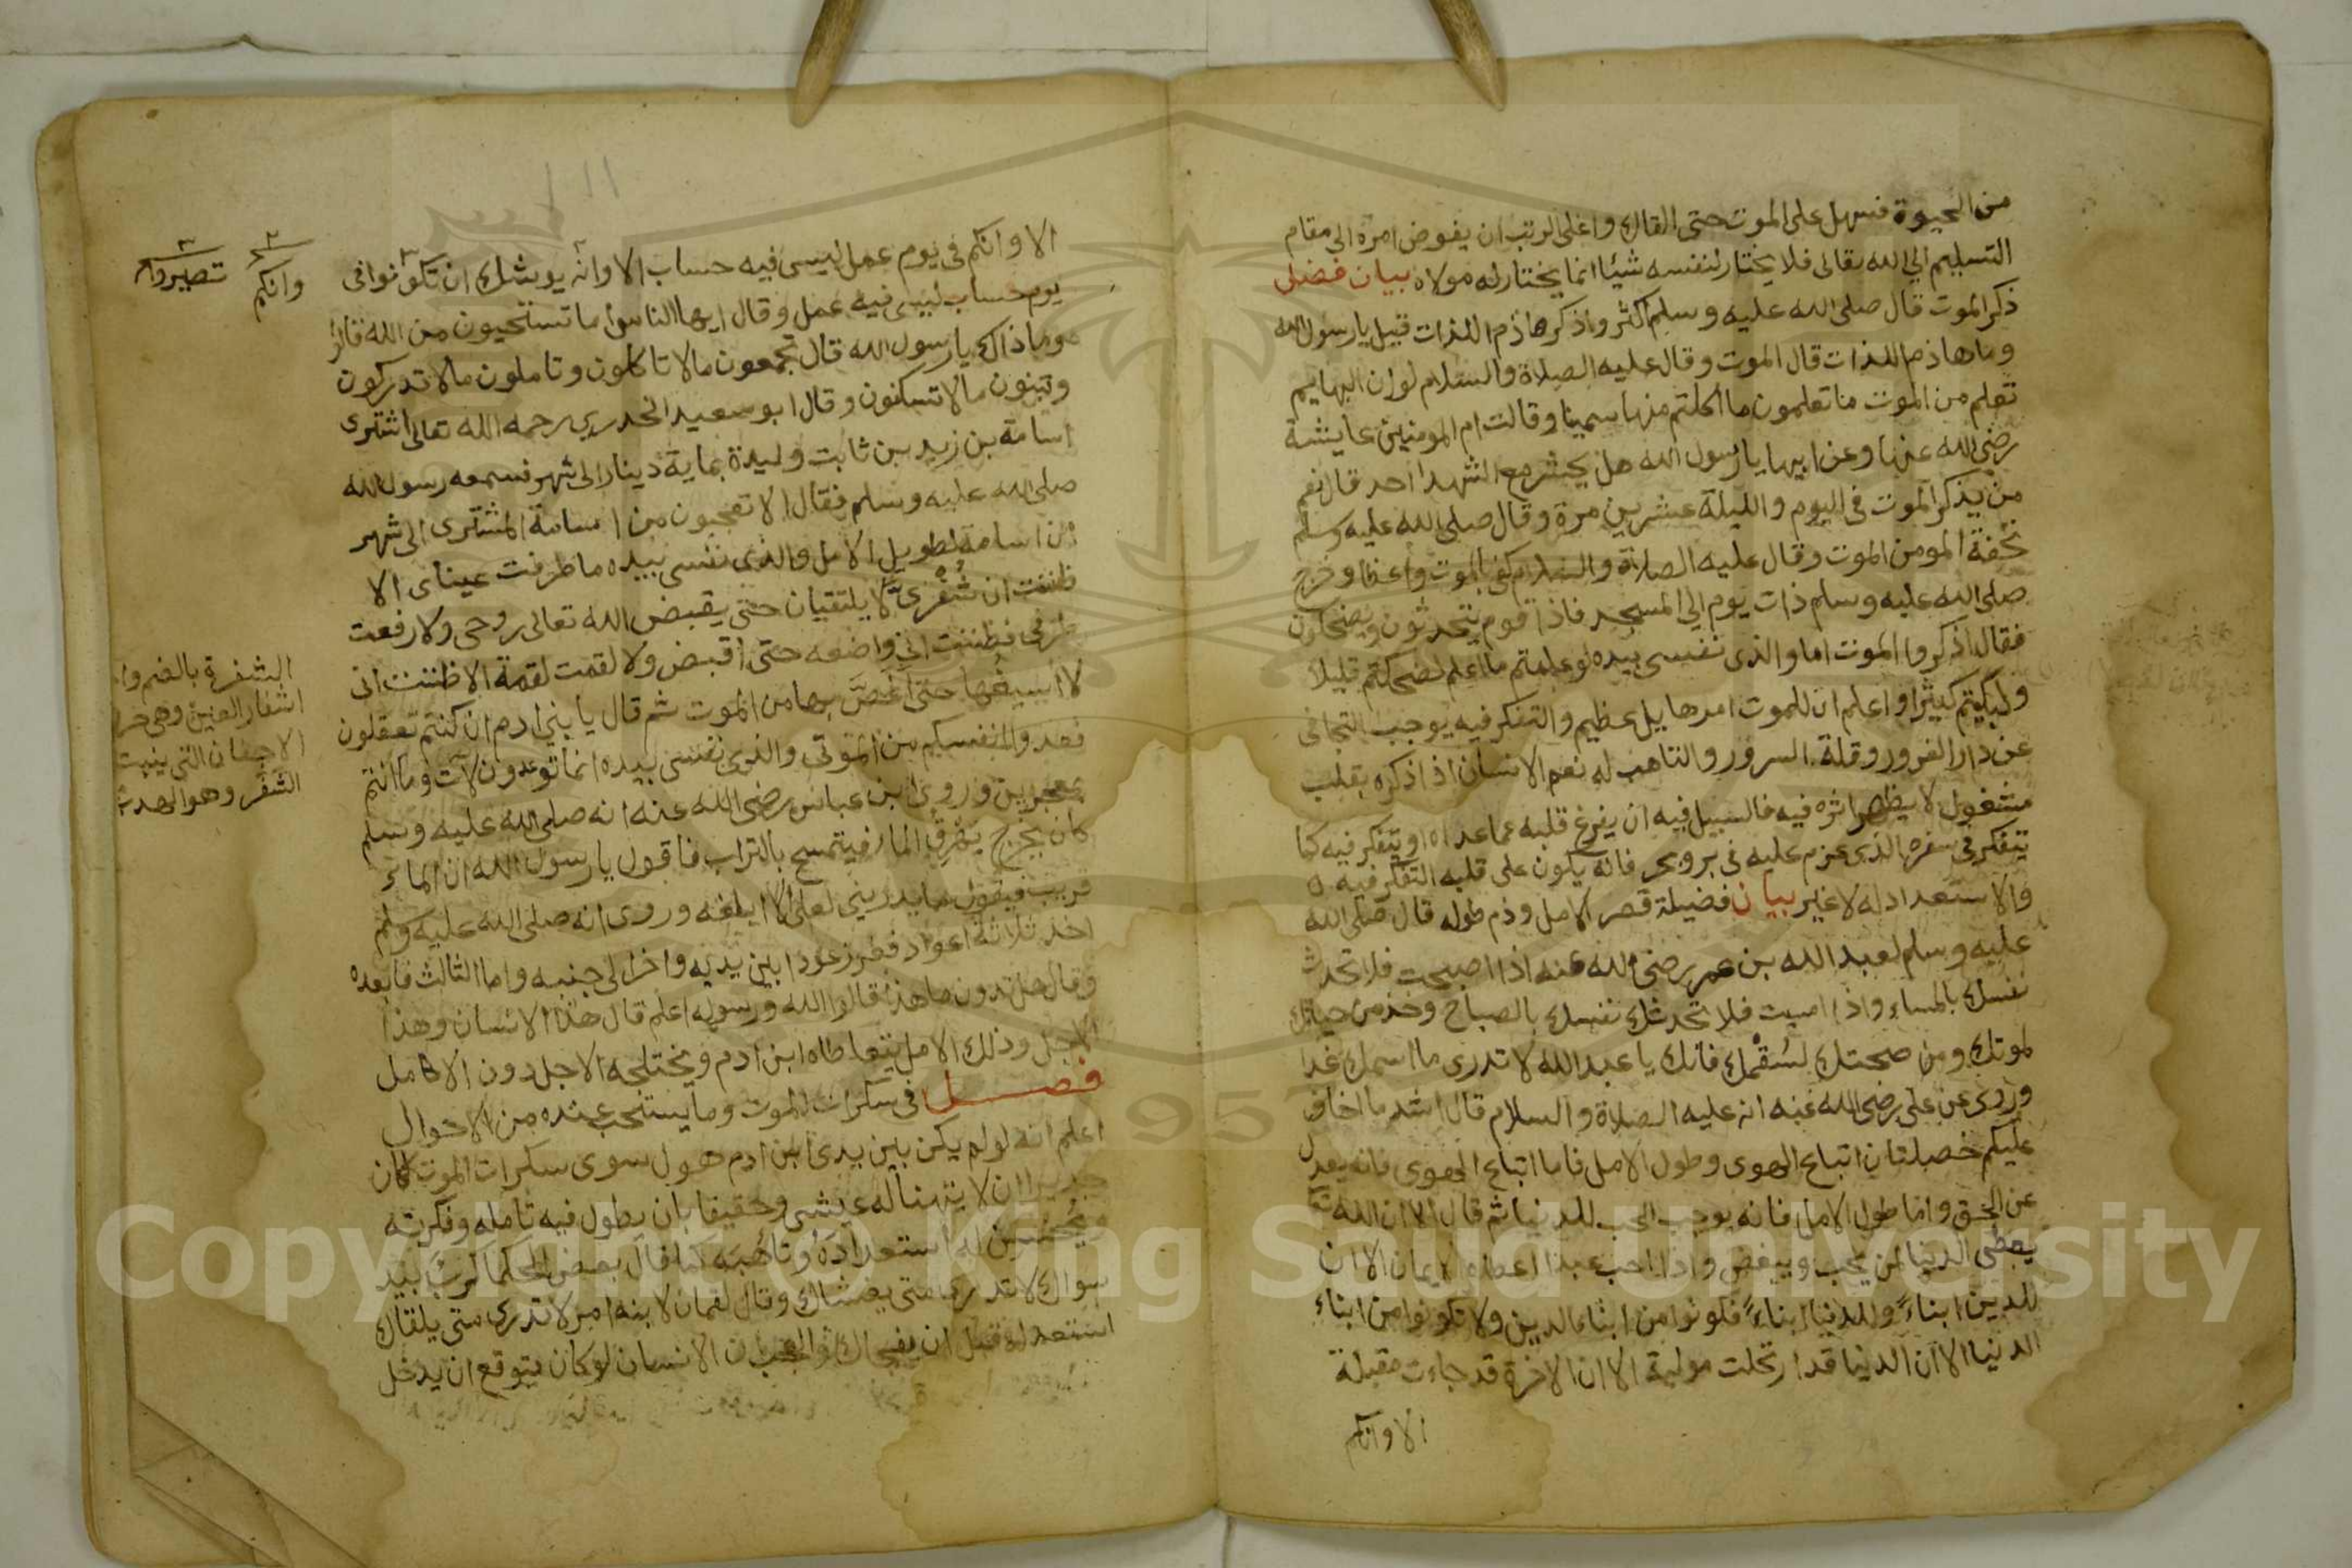 من الحيوة فسهل على الموت حتى القاك واعلى الرتب ان يفوض امره الى مقام
التسليم الي الله تعالى فلا يختار لنفسه شيئا انما يختار له مولاه بيان فضل
ذكر الموت قال صلى الله عليه وسلم اكثروا ذكر هاذم اللذات قيل يا رسول الله
وما هاذم اللذات قال الموت وقال عليه الصلاة والسلام لو ان البهايم
تعلم من الموت ما تعلمون ما اكلتم منها سمينا وقالت ام المومنين عايشة
رضى الله عنها وعن ابيها يا رسول الله هل يحشر مع الشهدا احد قال نعم
من يذكر الموت فى اليوم والليلة عشرين مرة وقال صلى الله عليه وسلم
تحفة المومن الموت وقال عليه الصلاة والسلام كفى بالموت واعظا وخرج
صلى الله عليه وسلم ذات يوم الي المسجد فاذا قوم يتحدثون ويضحكون
فقال اذكروا الموت اما والذى نفسى بيده لو علمتم ما اعلم لضحكتم قليلا
ولبكيتم كثيرا واعلم ان للموت امر هايل عظيم والتفكر فيه يوجب التجافى
عن دار الغرور وقلة السرور والتاهب له نعم الانسان اذا ذكره بقلب
مشغول لا يظهر اثره فيه فالسبيل فيه ان يفرغ قلبه عما عداه او يتفكر فيه كما
يتفكر فى سفره الذى عزم عليه فى بر وبحر فانه يكون على قلبه التفكر فيه
والاستعداد له لا غير بيان فضيلة قصر الامل وذم طوله قال صلى الله
عليه وسلم لعبد الله بن عمر رضى الله عنه اذا اصبحت فلا تحدث
نفسك بالمساء واذا امسيت فلا تحدث نفسك بالصباح وخذ من حياتك
لموتك ومن صحتك لسُقْمك فانك يا عبد الله لا تدرى ما اسمك غدا
وروى عن على رضى الله عنه انه عليه الصلاة والسلام قال اشد ما اخاف
عليكم خصلتان اتباع الهوى وطول الامل فاما اتباع الهوى فانه يعدل
عن الحق واما طول الامل فانه يوجب الحب للدنيا ثم قال الا ان الله تعا
يعطى الدنيا لمن يحب ويبغض واذا احب عبدا اعطاه الايمان الا ان
للدين ابناءً وللدنيا ابناءً فكونوا من ابناء الدين ولا تكونوا من ابناء
الدنيا الا ان الدنيا قد ارتحلت مولية الا ان الاخرة قد جاءت مقبلة
الا وانكم
الا وانكم فى يوم عمل ليس فيه حساب الا وانه يوشك ان تكونوا فى
يوم حساب ليس فيه عمل وقال ايها الناس اما تستحيون من الله قالوا
وما ذاك يا رسول الله قال تجمعون ما لا تاكلون وتاملون ما لا تدركون
وتبنون ما لا تسكنون وقال ابو سعيد الخدري رحمه الله تعالى اشترى
اسامة بن زيد بن ثابت وليدة بماية دينار الى شهر فسمعه رسول الله
صلى الله عليه وسلم فقال الا تعجبون من اسامة المشترى الى شهر
ان اسامة لطويل الامل والذى نفسى بيده ما طرفت عيناى الا
ظننت ان شُفْرىَّ لا يلتقيان حتى يقبض الله تعالى روحى ولا رفعت
طرفى فظننت انى واضعه حتى اقبض ولا لقمت لقمة الا ظننت انى
لا اسيغها حتى اغصَّ بها من الموت ثم قال يا بنى ادم ان كنتم تعقلون
فعدوا انفسكم من الموتى والذى نفسى بيده انما توعدون لآت وما انتم
بمعجزين وروى ابن عباس رضى الله عنه انه صلى الله عليه وسلم
كان يخرج يهرق الما فيتمسح بالتراب فاقول يا رسول الله ان الماء
قريب فيقول ما يدرينى لعلى لا ابلغه وروى انه صلى الله عليه وسلم
اخذ ثلاثة اعواد فغرز عودا بين يديه واخر الى جنبه واما الثالث فابعده
وقال هل تدرون ما هذا قالوا الله ورسوله اعلم قال هذا الانسان وهذا
الاجل وذلك الامل يتعاطاه ابن ادم ويختلجه الاجل دون الامل
فصل فى سكرات الموت وما يستحب عنده من الاحوال
اعلم انه لو لم يكن بين يدى ابن ادم هول سوى سكرات الموت لكان
جديرا ان لا يتهنا له عيش وحقيقا بان يطول فيه تامله وفكرته
ويُحسن له استعداده وتاهبه كما قال بعض الحكما كرب بيد
سواك لا تدرى متى يغشاك وقال لقمان لابنه امر لا تدرى متى يلقاك
استعد له قبل ان يفجاك والعجب ان الانسان لو كان يتوقع ان يدخل
٢ وانكم
٣ تصيروا
الشفرة بالضم وا
اشفار العين وهى حر
الاجفان التى ينبت
الشفر وهو الهدب
Copyright © King Saud University
1957